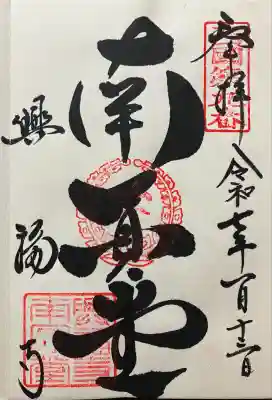 奉拝
令和七年一月十三日
南円堂
興福寺